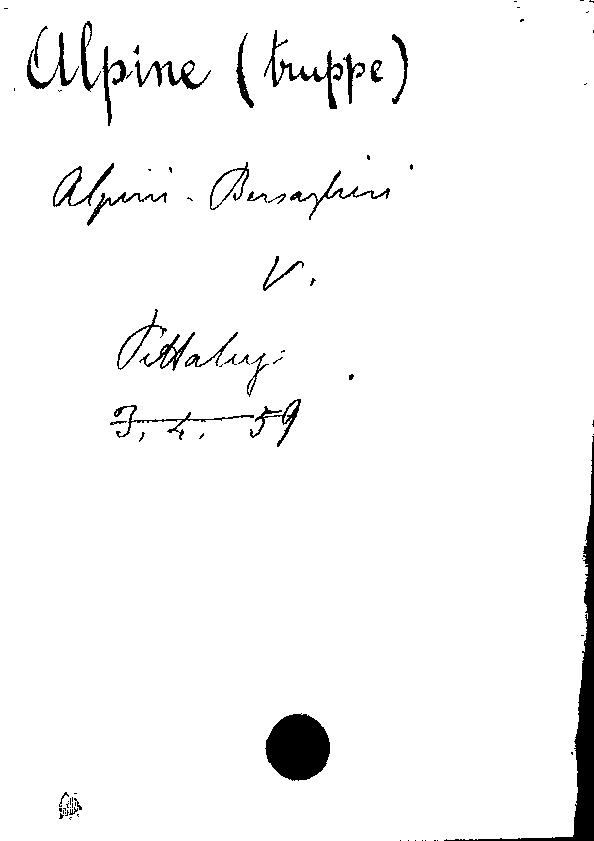 Alpine (truppe)
Alpini - Bersaglieri
V.
Pittaluga
3. 4. 59